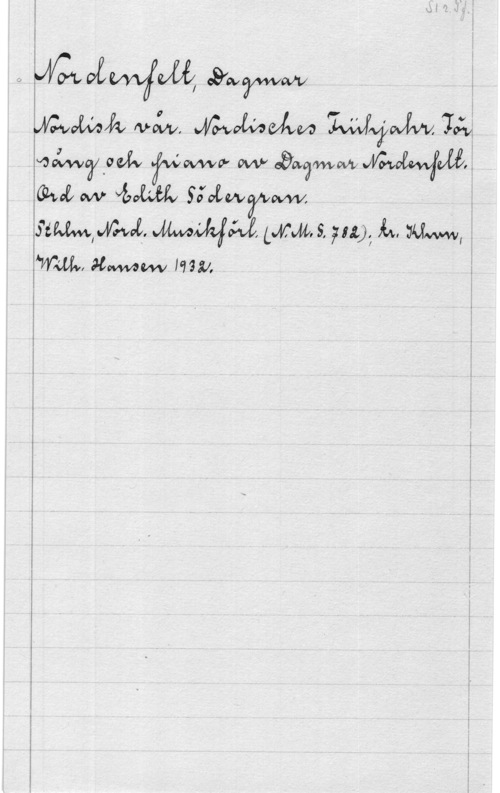 Nordenfelt, Dagmar
Nordisk vår. Nordisches Frühjahr. För
sång och piano av Dagmar Nordenfelt.
Ord av Edith Södergran.
Sthlm, Nord. Musikförl. (N.M.S. 782); tr. Khvn,
Wilh. Hansen 1932.